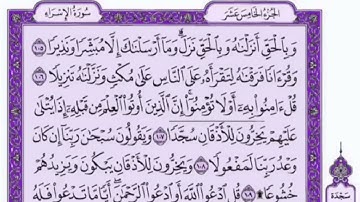 سُورَةُ الإِسْرَاءِ
الجُزْءُ الخَامِسَ عَشَرَ
وَبِالْحَقِّ أَنزَلْنَاهُ وَبِالْحَقِّ نَزَلَ وَمَا أَرْسَلْنَاكَ إِلَّا مُبَشِّرًا وَنَذِيرًا ١٠٥
وَقُرْءَانًا فَرَقْنَاهُ لِتَقْرَأَهُ عَلَى النَّاسِ عَلَى مُكْثٍ وَنَزَّلْنَاهُ تَنزِيلًا ١٠٦
قُلْ ءَامِنُوا بِهِ أَوْ لَا تُؤْمِنُوا إِنَّ الَّذِينَ أُوتُوا الْعِلْمَ مِن قَبْلِهِ إِذَا يُتْلَى
عَلَيْهِمْ يَخِرُّونَ لِلْأَذْقَانِ سُجَّدًا ١٠٧ وَيَقُولُونَ سُبْحَانَ رَبِّنَا إِن كَانَ
وَعْدُ رَبِّنَا لَمَفْعُولًا ١٠٨ وَيَخِرُّونَ لِلْأَذْقَانِ يَبْكُونَ وَيَزِيدُهُمْ
خُشُوعًا ۩ ١٠٩ قُلِ ادْعُوا اللَّهَ أَوِ ادْعُوا الرَّحْمَنَ أَيًّا مَّا تَدْعُوا فَلَهُ
سَجْدَة